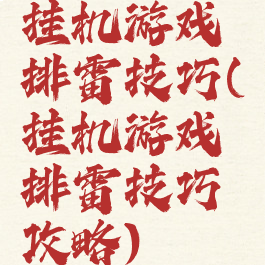 挂机游戏
排雷技巧(
挂机游戏
排雷技巧
攻略)